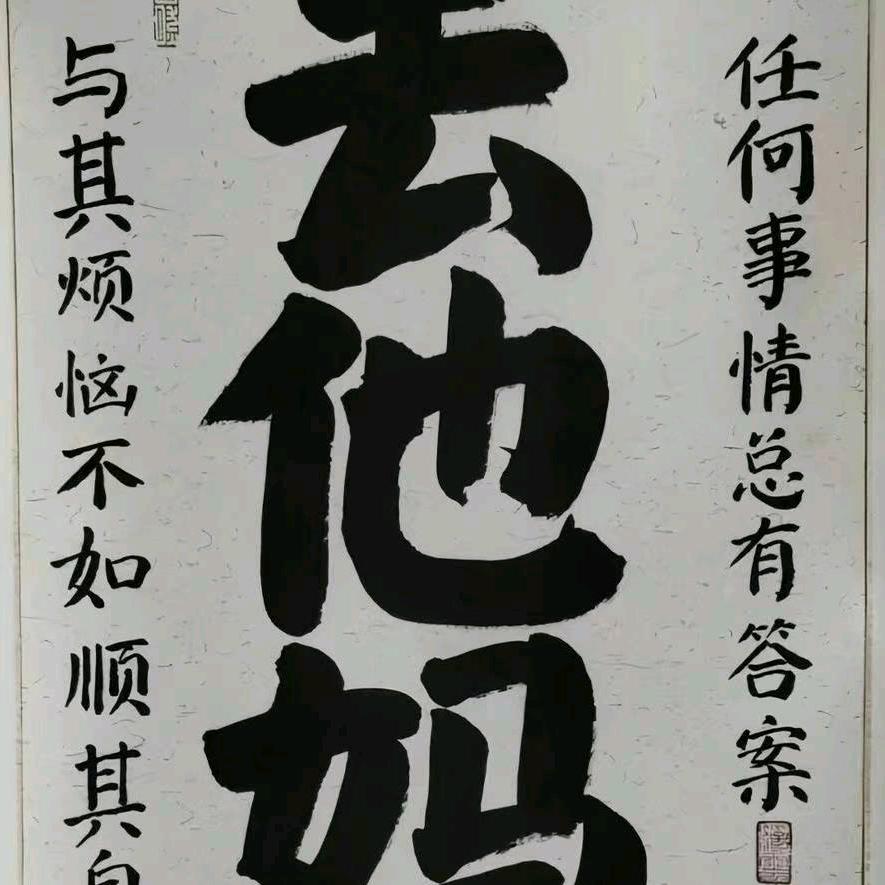 任何事情总有答案
去他妈
与其烦恼不如顺其自